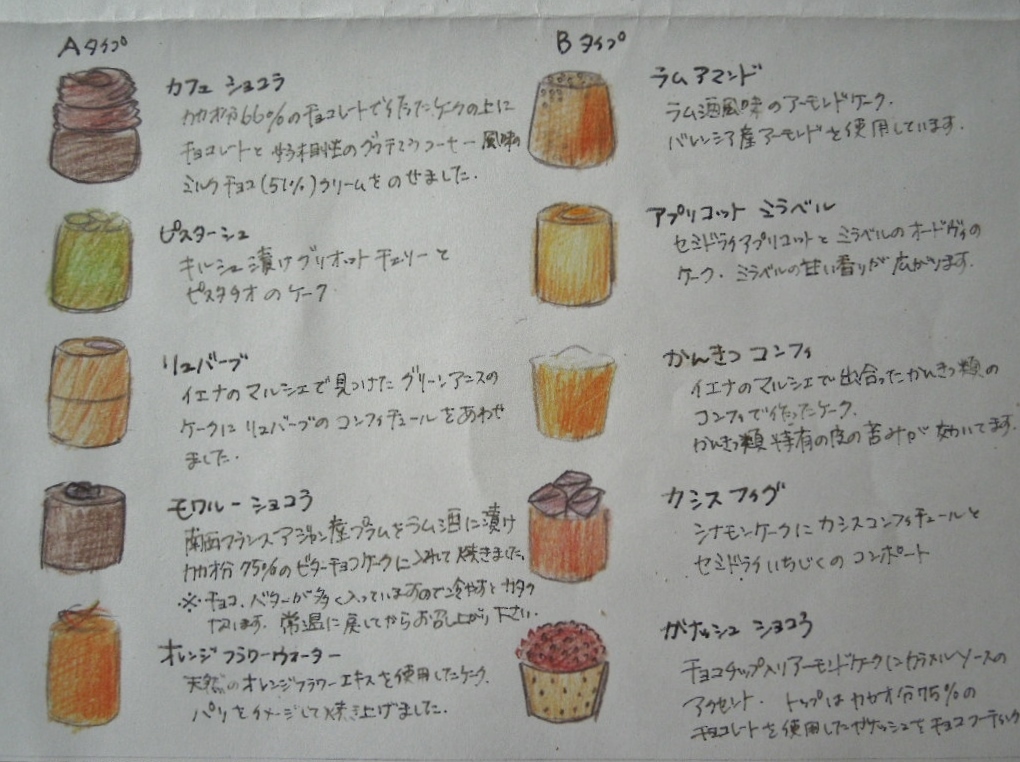 Aタイプ
カフェ ショコラ
カカオ分66%のチョコレートで作ったケークの上に
チョコレートと好相性のグァテマラコーヒー風味の
ミルクチョコ(51%)クリームをのせました.
ピスターシュ
キルシュ漬けグリオットチェリーと
ピスタチオのケーク
リュバーブ
イエナのマルシェで見つけたグリーンアニスの
ケークにリュバーブのコンフィチュールをあわせ
ました.
モワルー ショコラ
南西フランスアジャン産プラムをラム酒に漬け
カカオ分75%のビターチョコケークに入れて焼きました.
※チョコ、バターが多く入っていますので冷やすとカタク
なります. 常温に戻してからお召し上がり下さい.
オレンジフラワーウォーター
天然のオレンジフラワーエキスを使用したケーク.
パリをイメージして焼き上げました.
Bタイプ
ラムアマンド
ラム酒風味のアーモンドケーク.
バレンシア産アーモンドを使用しています.
アプリコット ミラベル
セミドライアプリコットとミラベルのオードヴィの
ケーク. ミラベルの甘い香りが広がります.
かんきつ コンフィ
イエナのマルシェで出合ったかんきつ類の
コンフィで作ったケーク.
かんきつ類特有の皮の苦みが効いてます.
カシスフィグ
シナモンケークにカシスコンフィチュールと
セミドライいちじくのコンポート
ガナッシュ ショコラ
チョコチップ入りアーモンドケークにカラメルソースの
アクセント. トップはカカオ分75%の
チョコレートを使用したガナッシュをチョココーティング